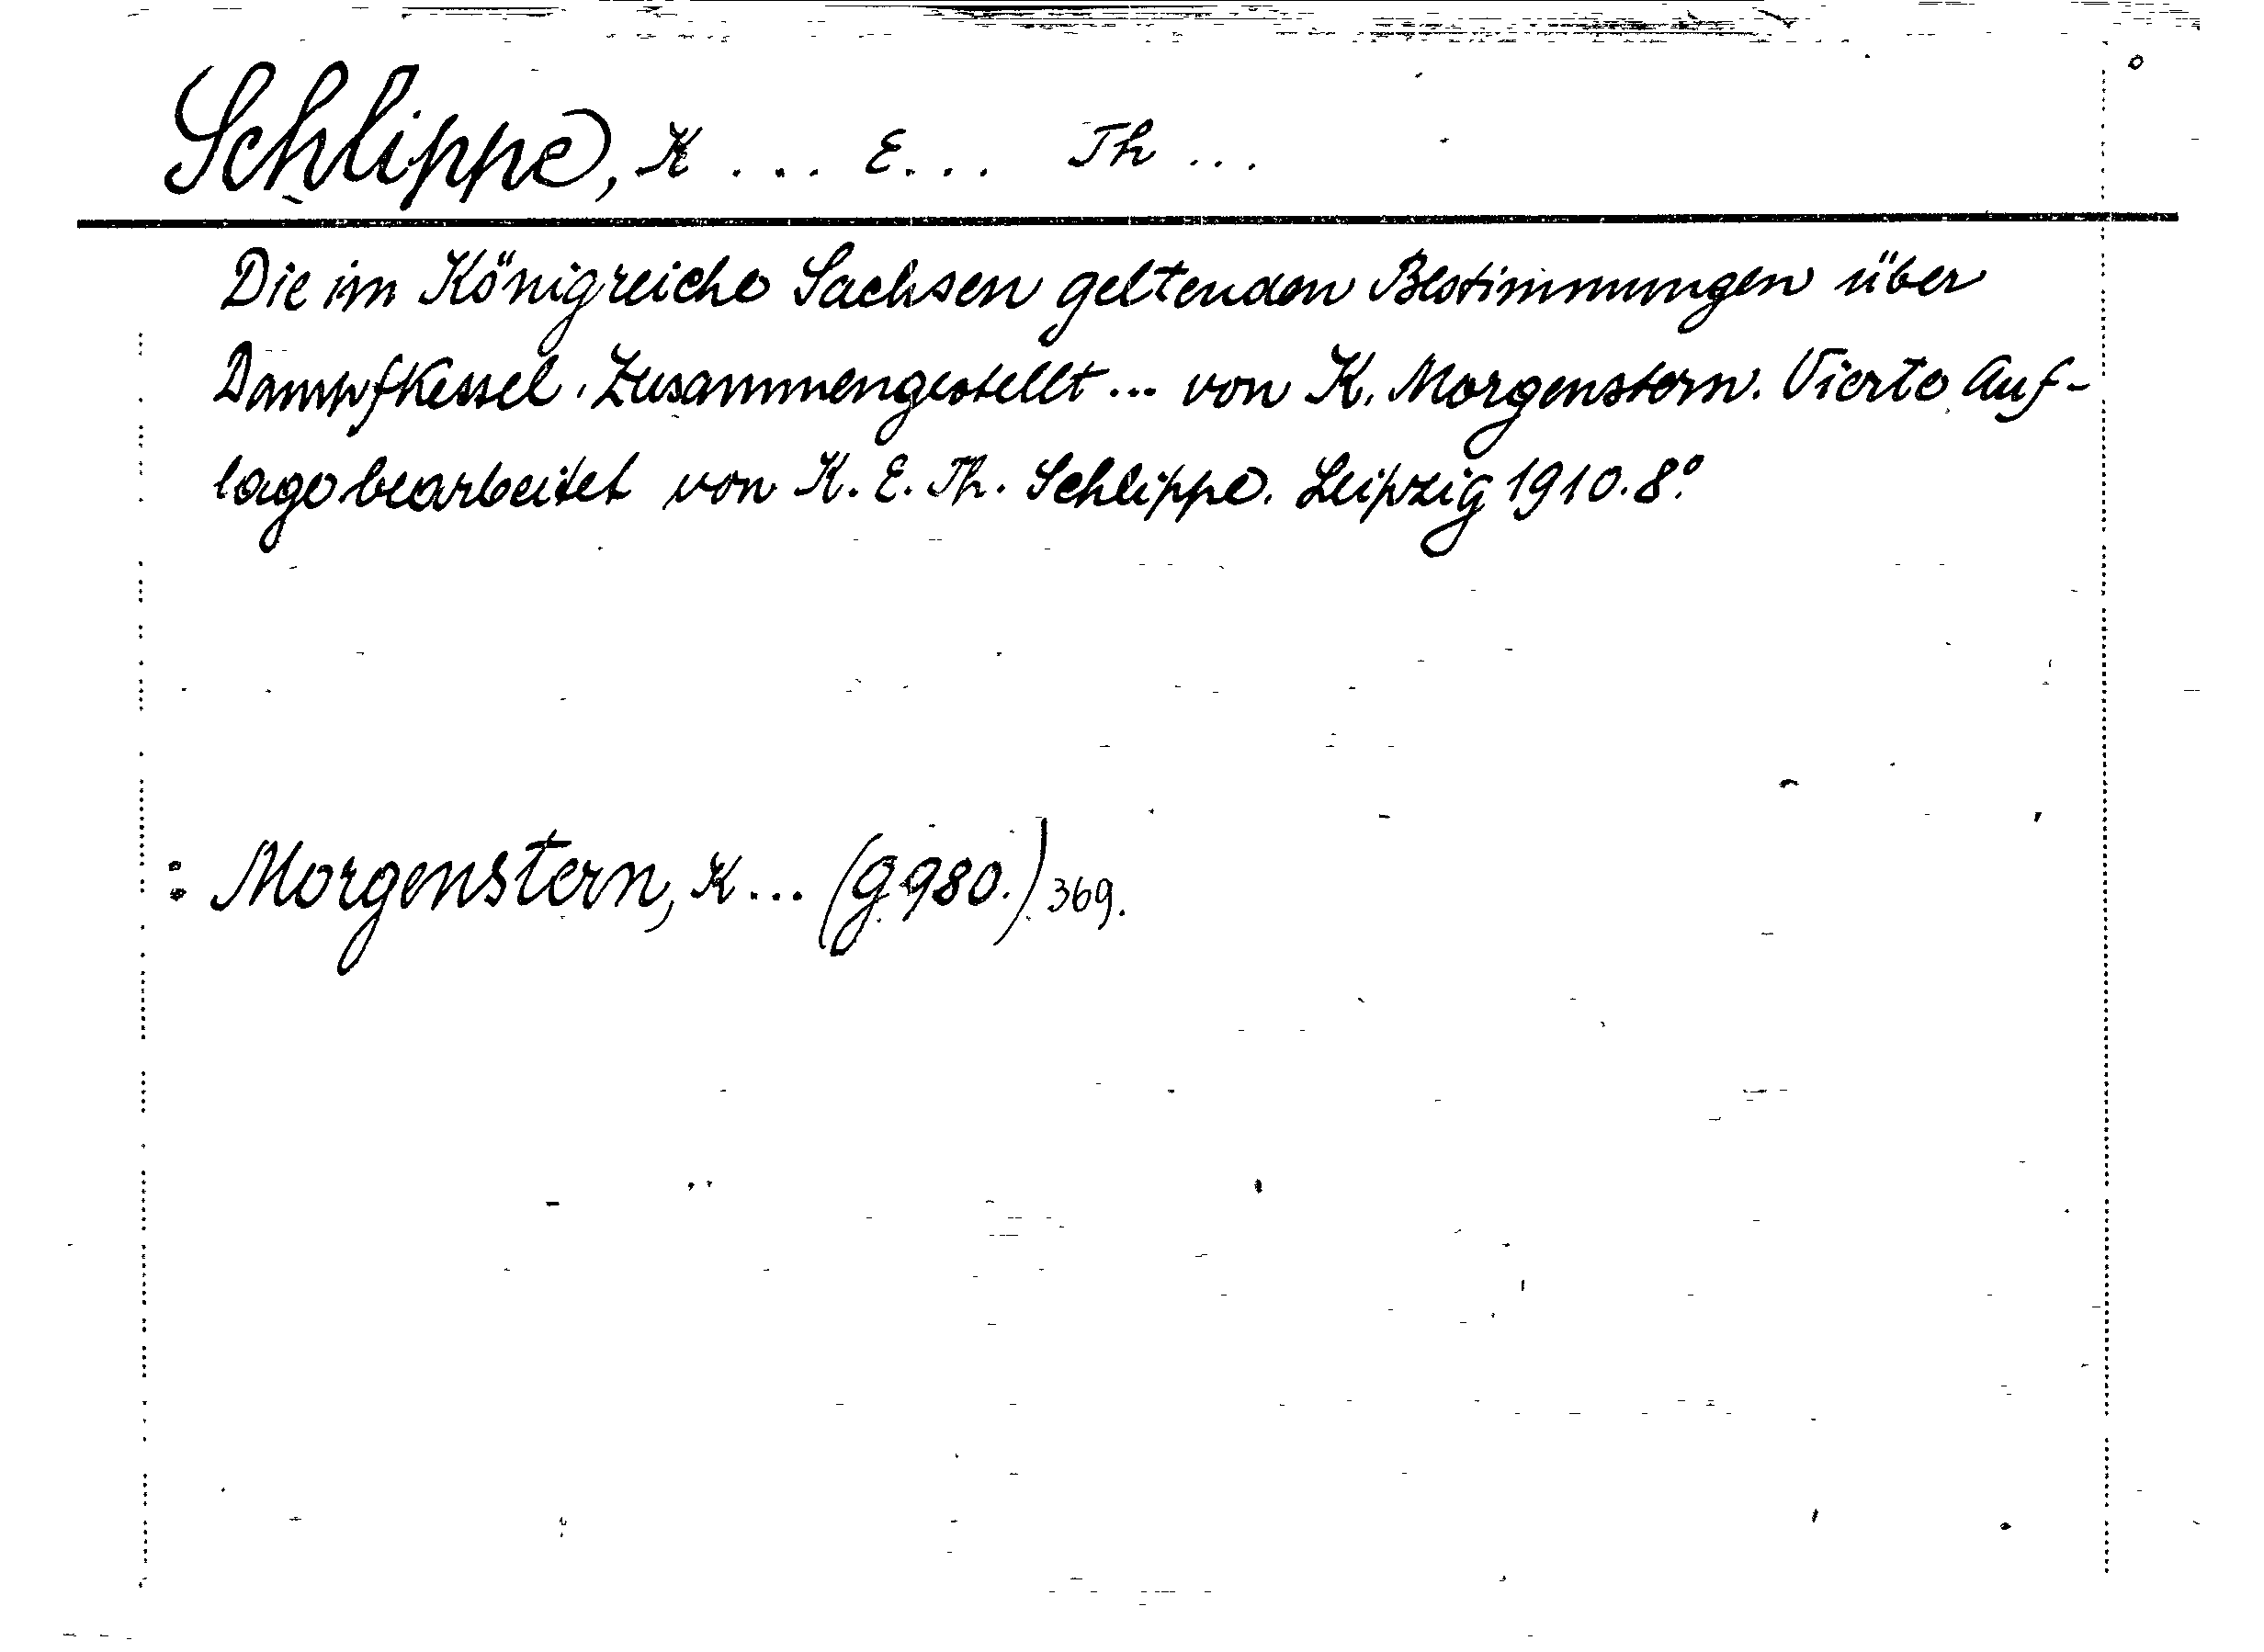 Schlippe, K... E... Th...
Die im Königreiche Sachsen geltenden Bestimmungen über
Dampfkessel. Zusammengestellt... von K. Morgenstern. Vierte Auf-
lage bearbeitet von K. E. Th. Schlippe. Leipzig 1910. 8°.
: Morgenstern, K... (g. 980.) 369.